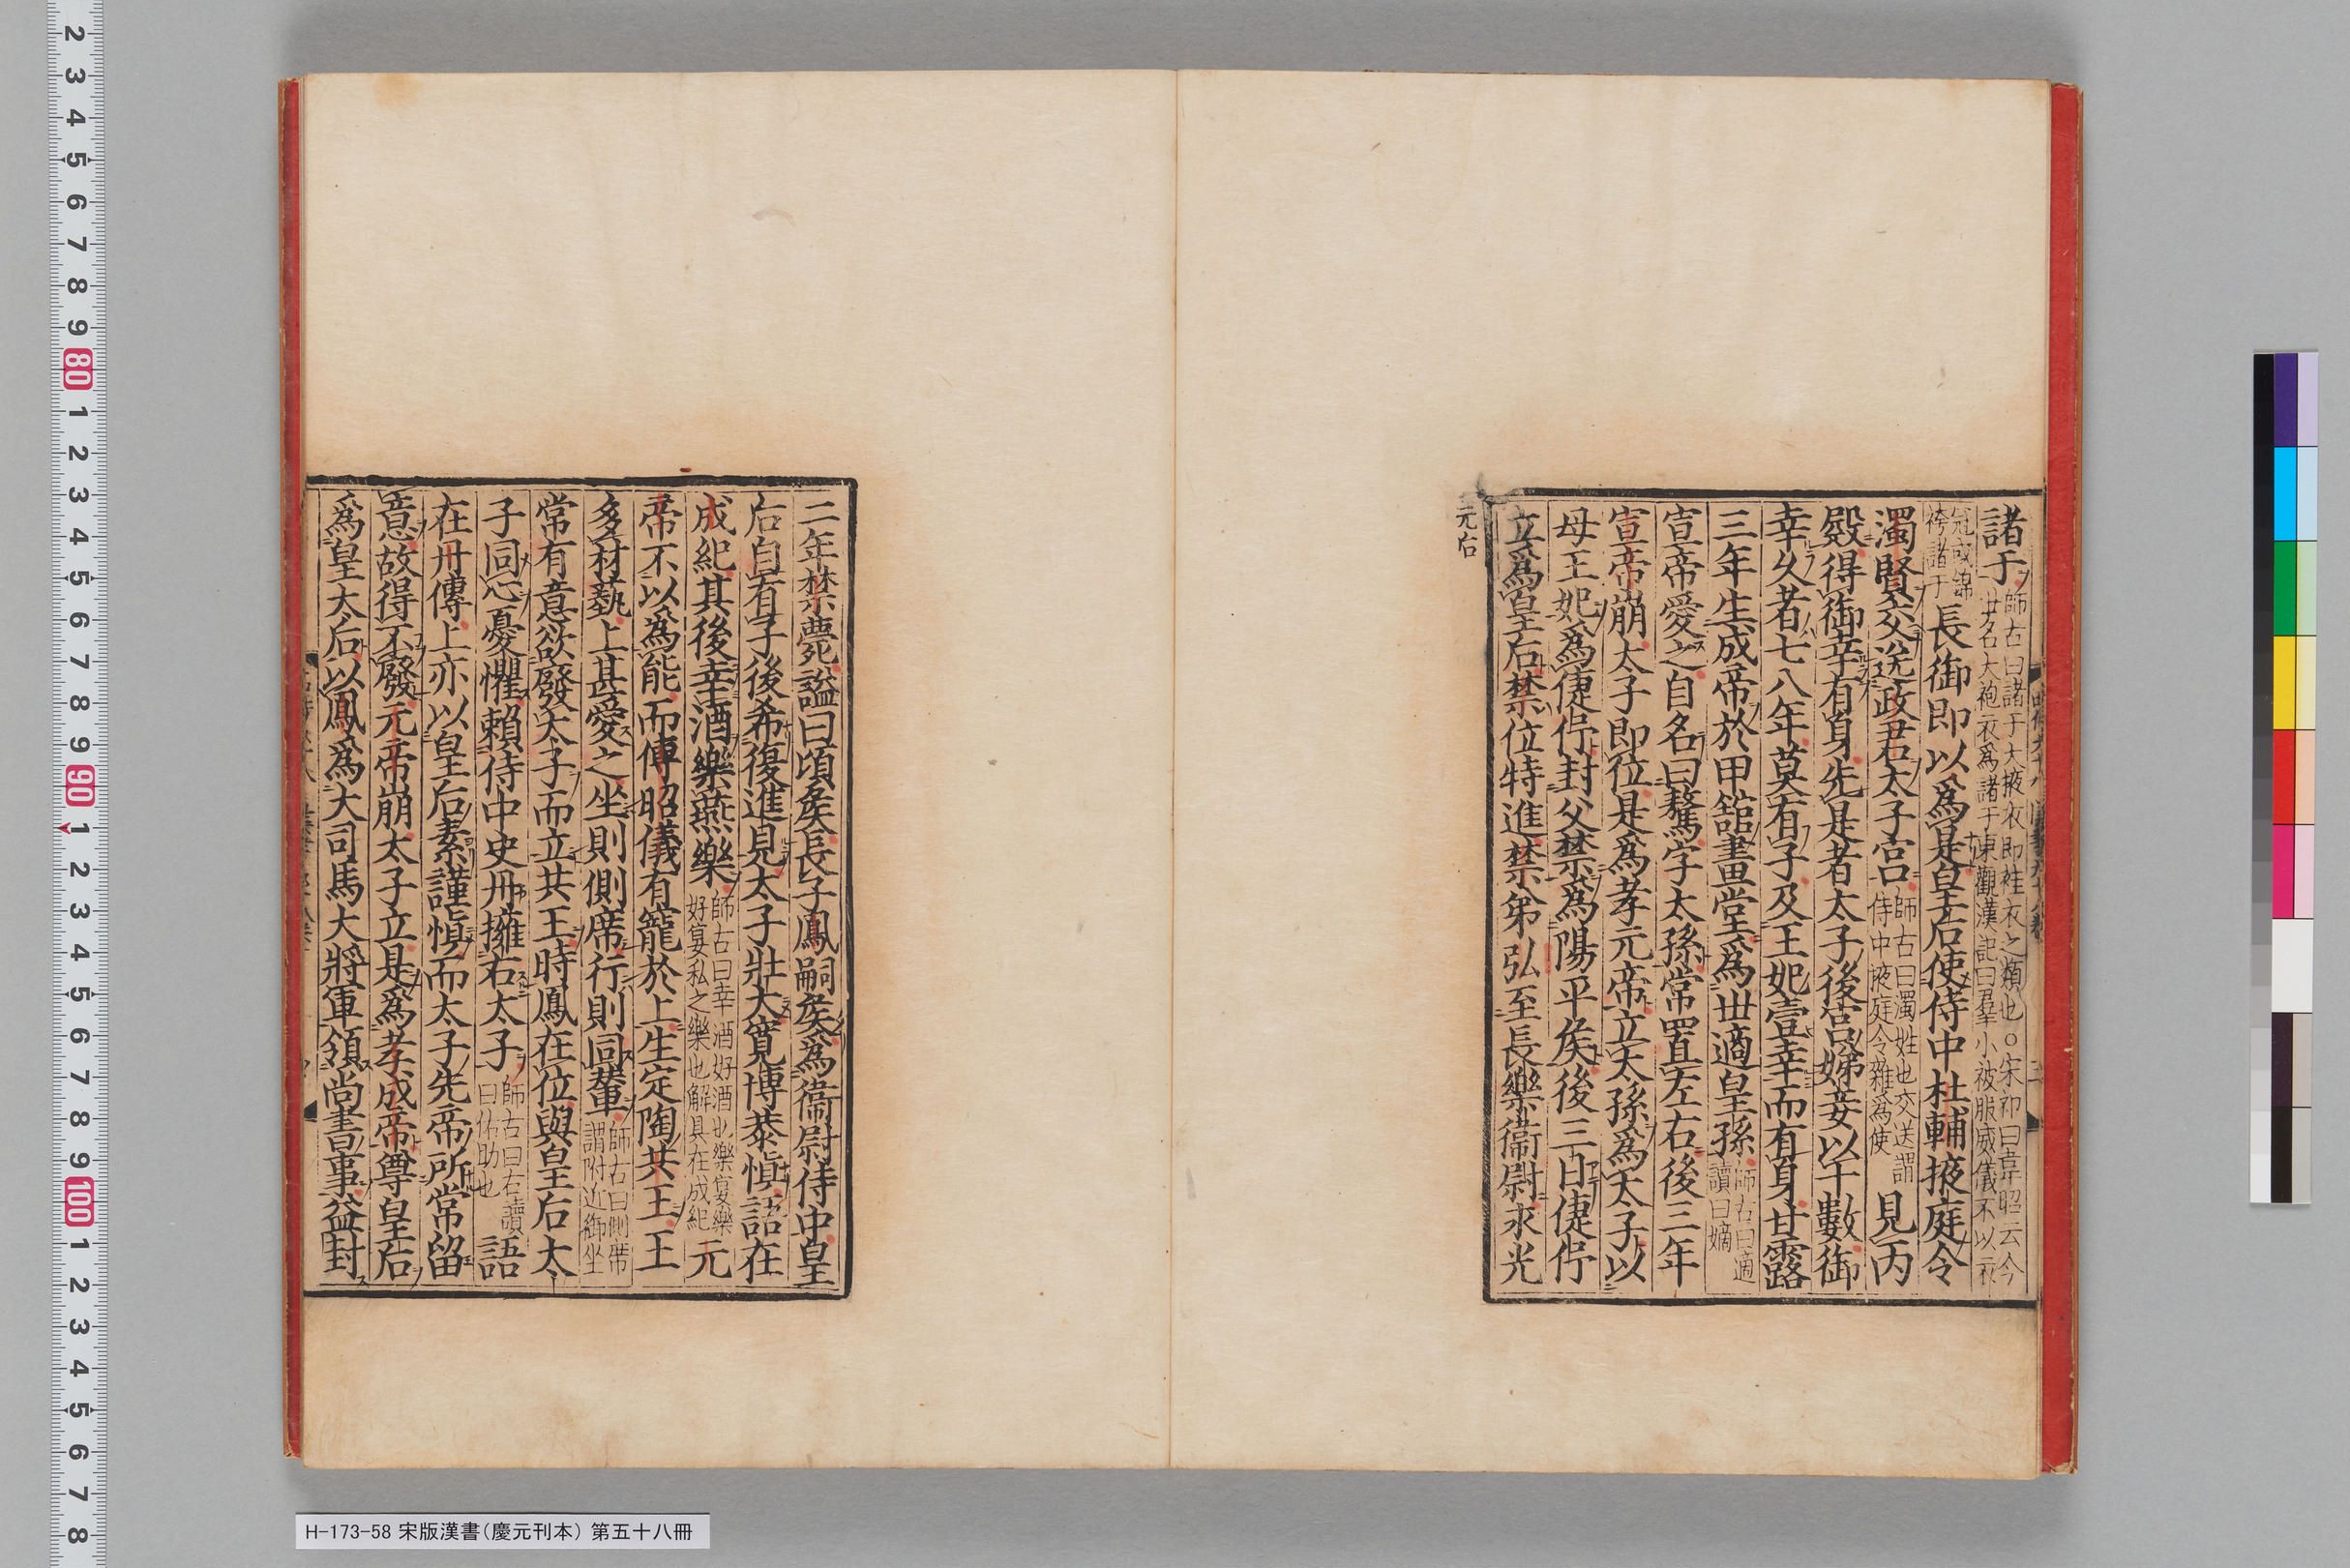 諸于師古曰諸于大掖衣即袿衣之類也○宋祁曰韋昭云今
世名大袍衣爲諸于東觀漢記曰羣小被服威儀不以衣
冠或繡
袴諸于長御即以爲是皇后使侍中杜輔掖庭令
濁賢交送政君太子宮師古曰濁姓也交送謂
侍中掖庭令雜爲使見丙
殿得御幸有身先是者太子後宮娣妾以十數御
幸久者七八年莫有子及王妃壹幸而有身甘露
三年生成帝於甲館畫堂爲世適皇孫師古曰適
讀曰嫡
宣帝愛之自名曰驁字太孫常置左右後三年
宣帝崩太子即位是爲孝元帝立太孫爲太子以
母王妃爲倢伃封父禁爲陽平矦後三日倢伃
立爲皇后禁位特進禁弟弘至長樂衞尉永光
元后
二年禁薨謚曰頃矦長子鳳嗣矦爲衞尉侍中皇
后自有子後希復進見太子壯大寬博恭慎語在
成紀其後幸酒樂燕樂師古曰幸酒好酒也樂宴樂
好宴私之樂也解具在成紀元
帝不以爲能而傅昭儀有寵於上生定陶共王王
多材藝上甚愛之坐則側席行則同輦師古曰側席
謂附近御坐
常有意欲廢太子而立共王時鳳在位與皇后太
子同心憂懼賴侍中史丹擁右太子師古曰右讀
曰佑助也語
在丹傳上亦以皇后素謹慎而太子先帝所常留
意故得不廢元帝崩太子立是爲孝成帝尊皇后
爲皇太后以鳳爲大司馬大將軍領尚書事益封
H-173-58 宋版漢書(慶元刊本) 第五十八冊